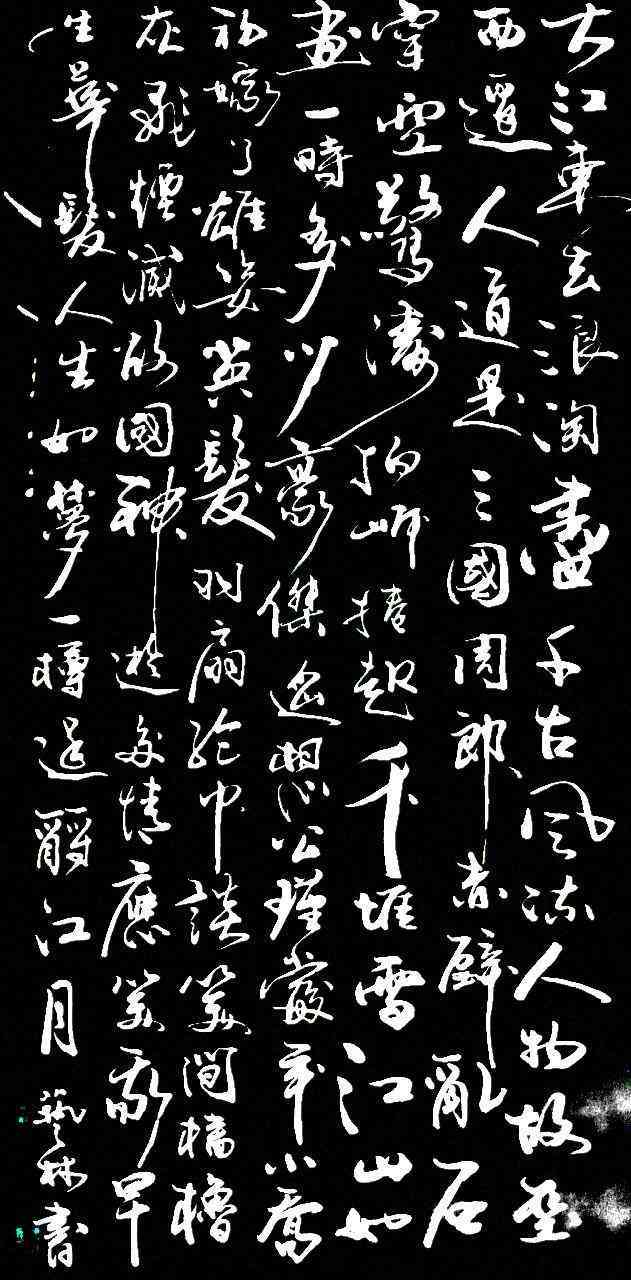 大江東去浪淘盡千古風流人物故壘
西邊人道是三國周郎赤壁亂石
穿空驚濤拍岸捲起千堆雪江山如
畫一時多少豪傑遙想公瑾當年小喬
初嫁了雄姿英髮羽扇綸巾談笑間檣櫓
灰飛煙滅故國神遊多情應笑我早
生華髮人生如夢一樽還酹江月藝林書